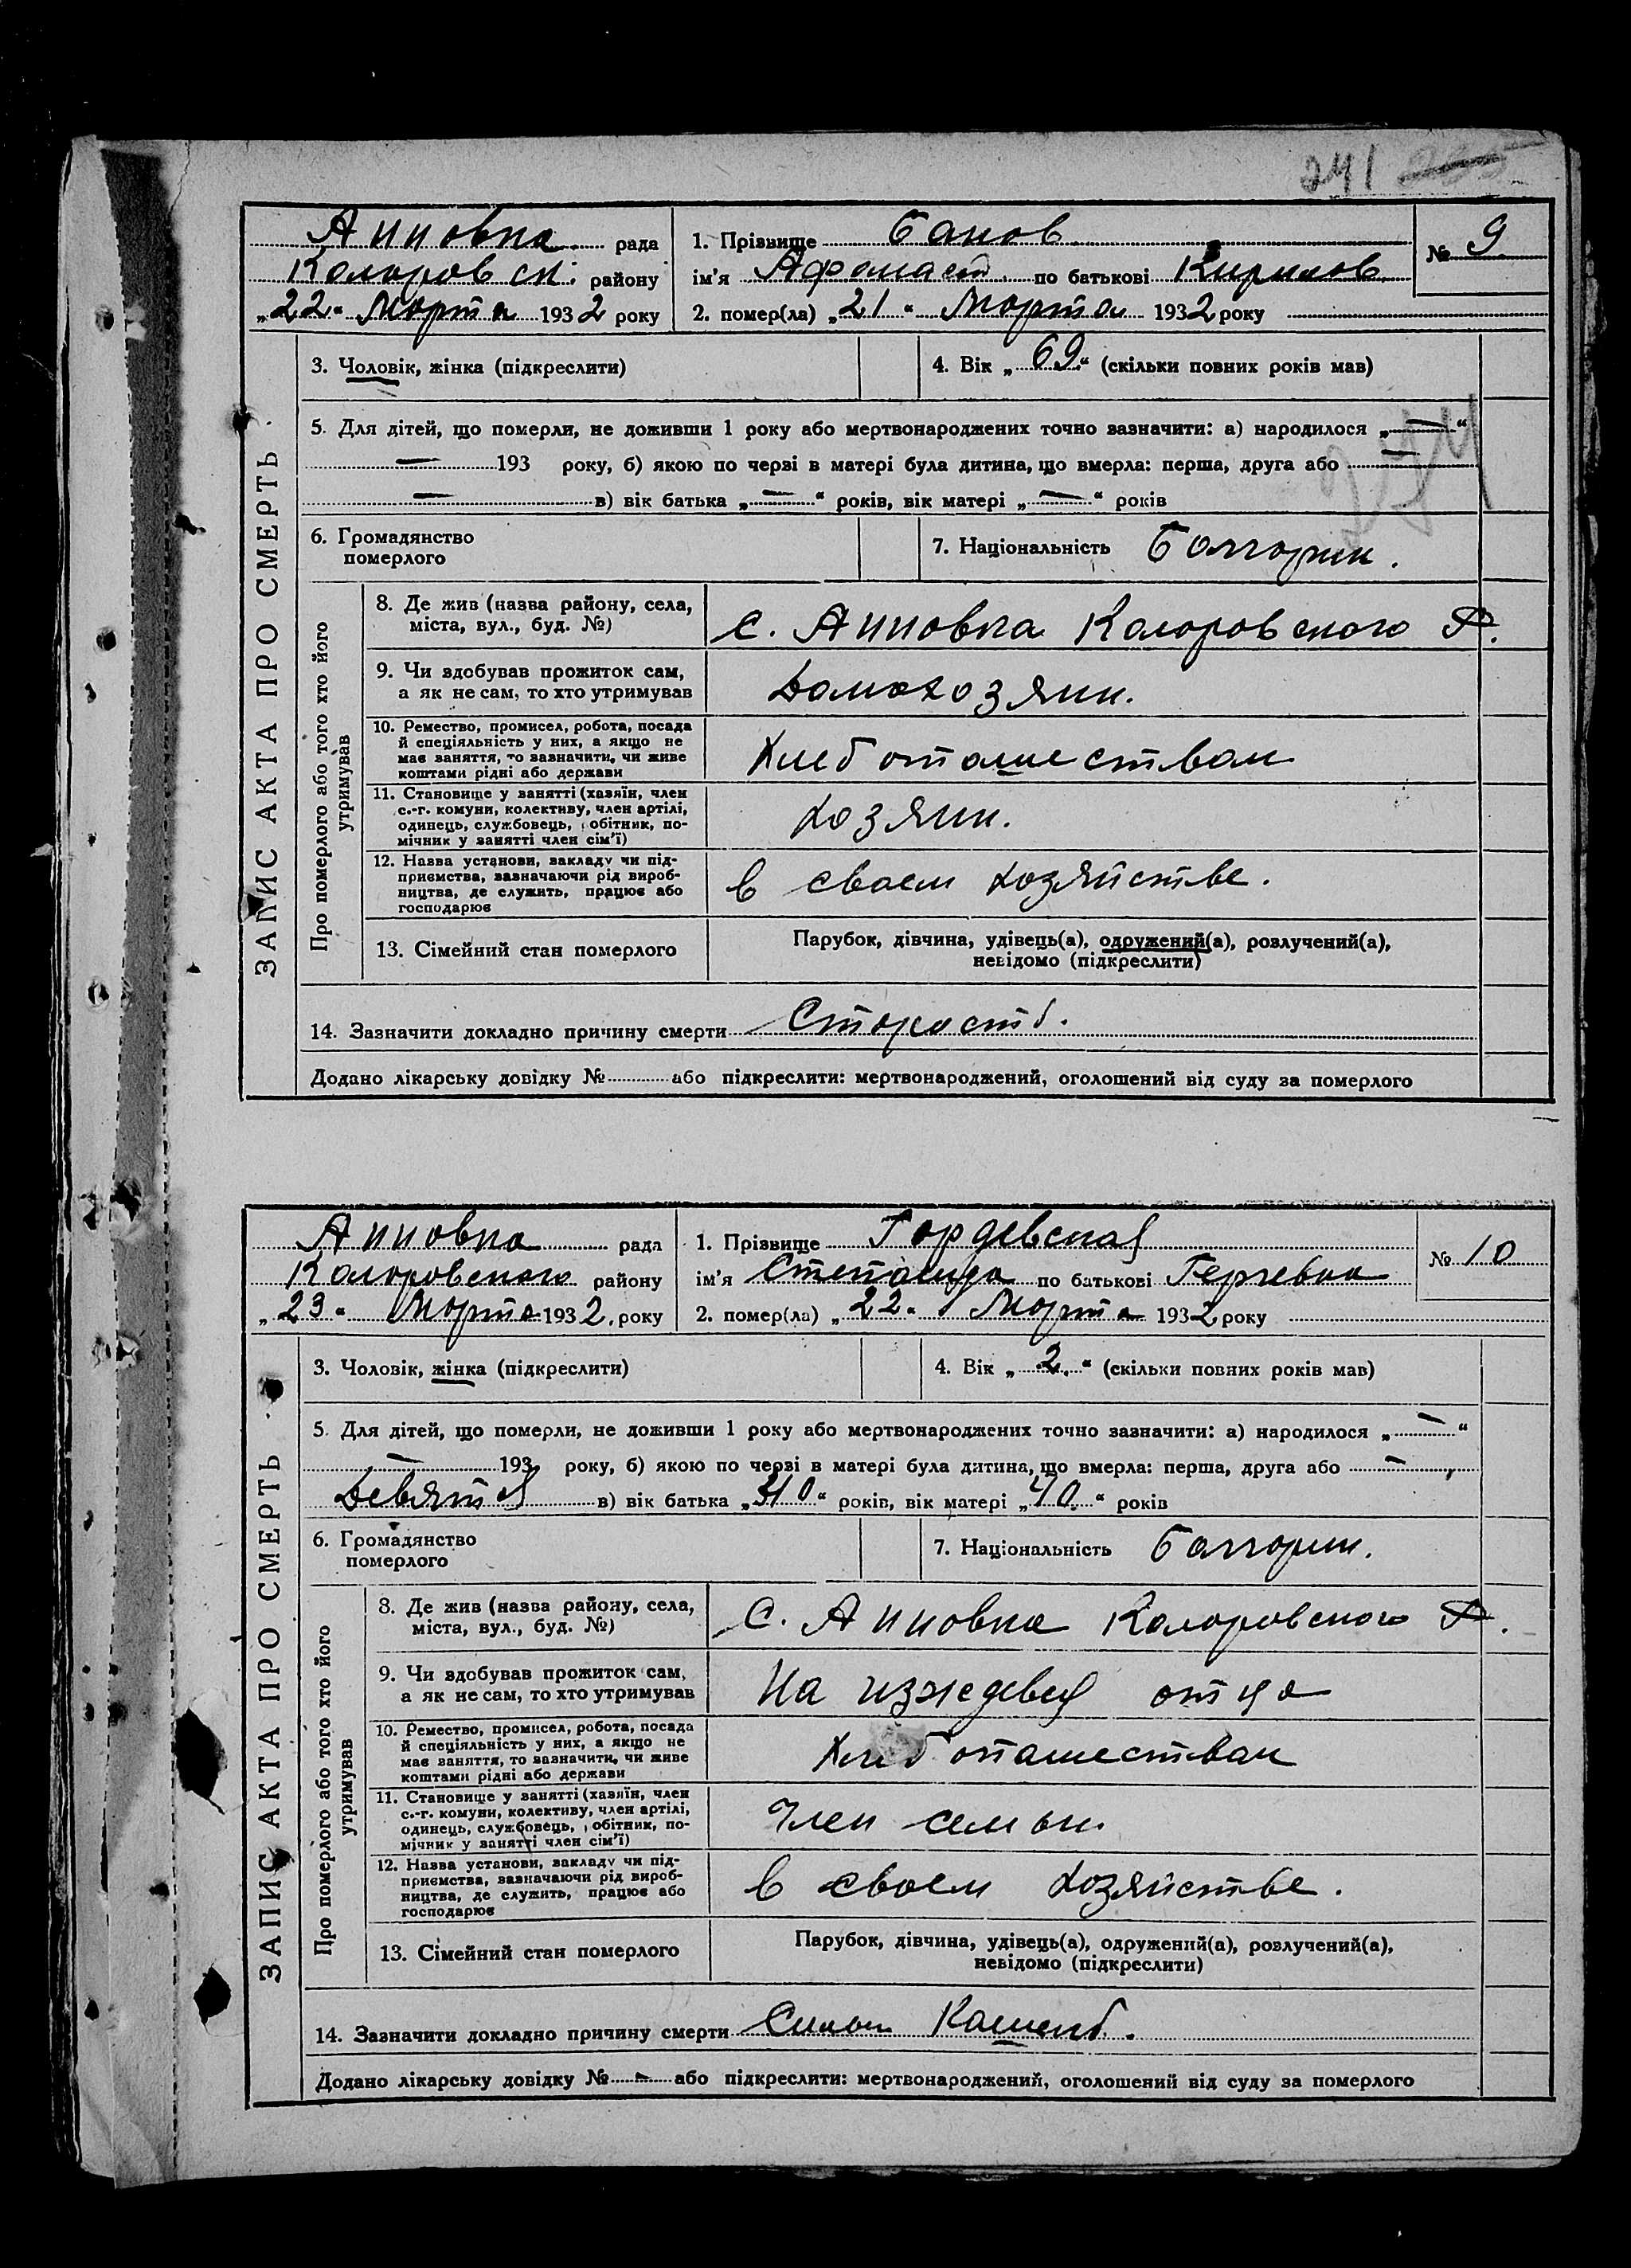 241 265
Анновка рада
Коларовск. району
„22“ Марта 1932 року
1. Прізвище Банов
ім'я Афанаст по батькові Кирилов
2. помер(ла) „21“ Марта 1932 року
№ 9
ЗАПИС АКТА ПРО СМЕРТЬ
3. Чоловік, жінка (підкреслити)
4. Вік „69“ (скільки повних років мав)
5. Для дітей, що померли, не доживши 1 року або мертвонароджених точно зазначити: а) народилося „—“
— 193 року, б) якою по черві в матері була дитина, що вмерла: перша, друга або —
— в) вік батька „—“ років, вік матері „—“ років
6. Громадянство
померлого
7. Національність Болгорин.
Про померлого або того хто його
утримував
8. Де жив (назва району, села,
міста, вул., буд. №)
с. Анновка Коларовского Р.
9. Чи здобував прожиток сам,
а як не сам, то хто утримував
Домохозяин.
10. Ремество, промисел, робота, посада
й спеціяльність у них, а якщо не
має заняття, то зазначити, чи живе
коштами рідні або держави
Хлебопашествам
11. Становище у занятті (хазяїн, член
с.-г. комуни, колективу, член артілі,
одинець, службовець, обітник, по-
мічник у занятті член сім'ї)
Хозяин.
12. Назва установи, закладу чи під-
приємства, зазначаючи рід вироб-
ництва, де служить, працює або
господарює
в своем хозяйстве.
13. Сімейний стан померлого
Парубок, дівчина, удівець(а), одружений(а), розлучений(а),
невідомо (підкреслити)
14. Зазначити докладно причину смерти Старость.
Додано лікарську довідку № або підкреслити: мертвонароджений, оголошений від суду за померлого
Анновка рада
Коларовского району
„23“ Марта 1932 року
1. Прізвище Гордевская
ім'я Степанида по батькові Гергевна
2. помер(ла) „22“ Марта 1932 року
№ 10
ЗАПИС АКТА ПРО СМЕРТЬ
3. Чоловік, жінка (підкреслити)
4. Вік „2“ (скільки повних років мав)
5. Для дітей, що померли, не доживши 1 року або мертвонароджених точно зазначити: а) народилося „—“
— 193 року, б) якою по черві в матері була дитина, що вмерла: перша, друга або —
Девятя в) вік батька „40“ років, вік матері „40“ років
6. Громадянство
померлого
7. Національність Болгорин.
Про померлого або того хто його
утримував
8. Де жив (назва району, села,
міста, вул., буд. №)
С. Анновка Коларовского Р.
9. Чи здобував прожиток сам,
а як не сам, то хто утримував
На изжедвея отца
10. Ремество, промисел, робота, посада
й спеціяльність у них, а якщо не
має заняття, то зазначити, чи живе
коштами рідні або держави
Хлебопашествам
11. Становище у занятті (хазяїн, член
с.-г. комуни, колективу, член артілі,
одинець, службовець, обітник, по-
мічник у занятті член сім'ї)
Член семьи.
12. Назва установи, закладу чи під-
приємства, зазначаючи рід вироб-
ництва, де служить, працює або
господарює
в своем хозяйстве.
13. Сімейний стан померлого
Парубок, дівчина, удівець(а), одружений(а), розлучений(а),
невідомо (підкреслити)
14. Зазначити докладно причину смерти Кашель.
Додано лікарську довідку № — або підкреслити: мертвонароджений, оголошений від суду за померлого